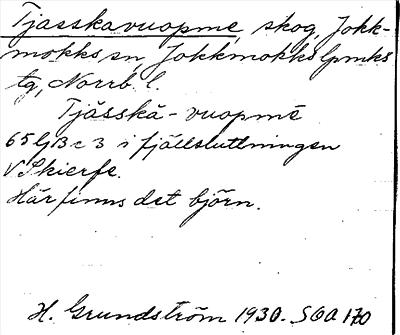 Tjasskavuopme, skog, Jokk-
mokks sn, Jokkmokks lpmks
tg, Norrb. l.
Tjăsskā-vuopmē
65 G, B c 3 i fjällsluttningen
V Skierfe.
Här finns det björn.
H. Grundström 1930. SOA 170